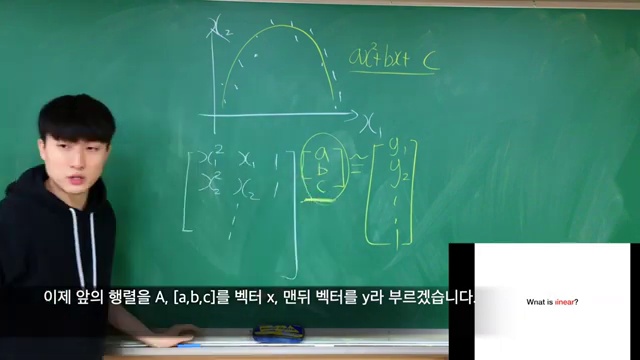 x₂
ax²+bx+ c
x₁
x₁² x₁ 1
x₂² x₂ 1
a
b
c
≅
y₁
y₂
이제 앞의 행렬을 A, [a,b,c]를 벡터 x, 맨뒤 벡터를 y라 부르겠습니다.
Wnat is sinear?